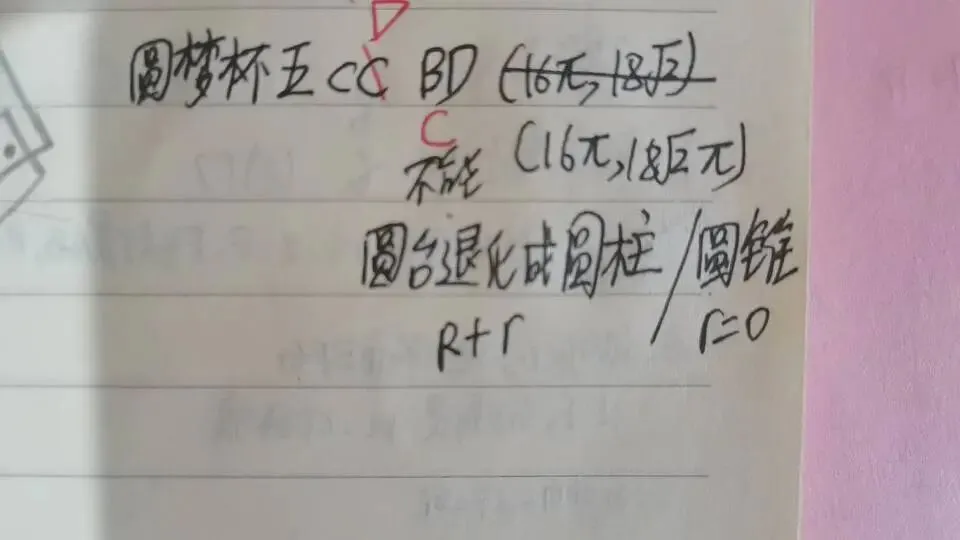 D
圆梦杯五CC BD (16π,18√2)
C
不能 (16π,18√2π)
圆台退化成圆柱/圆锥
R+r r=0